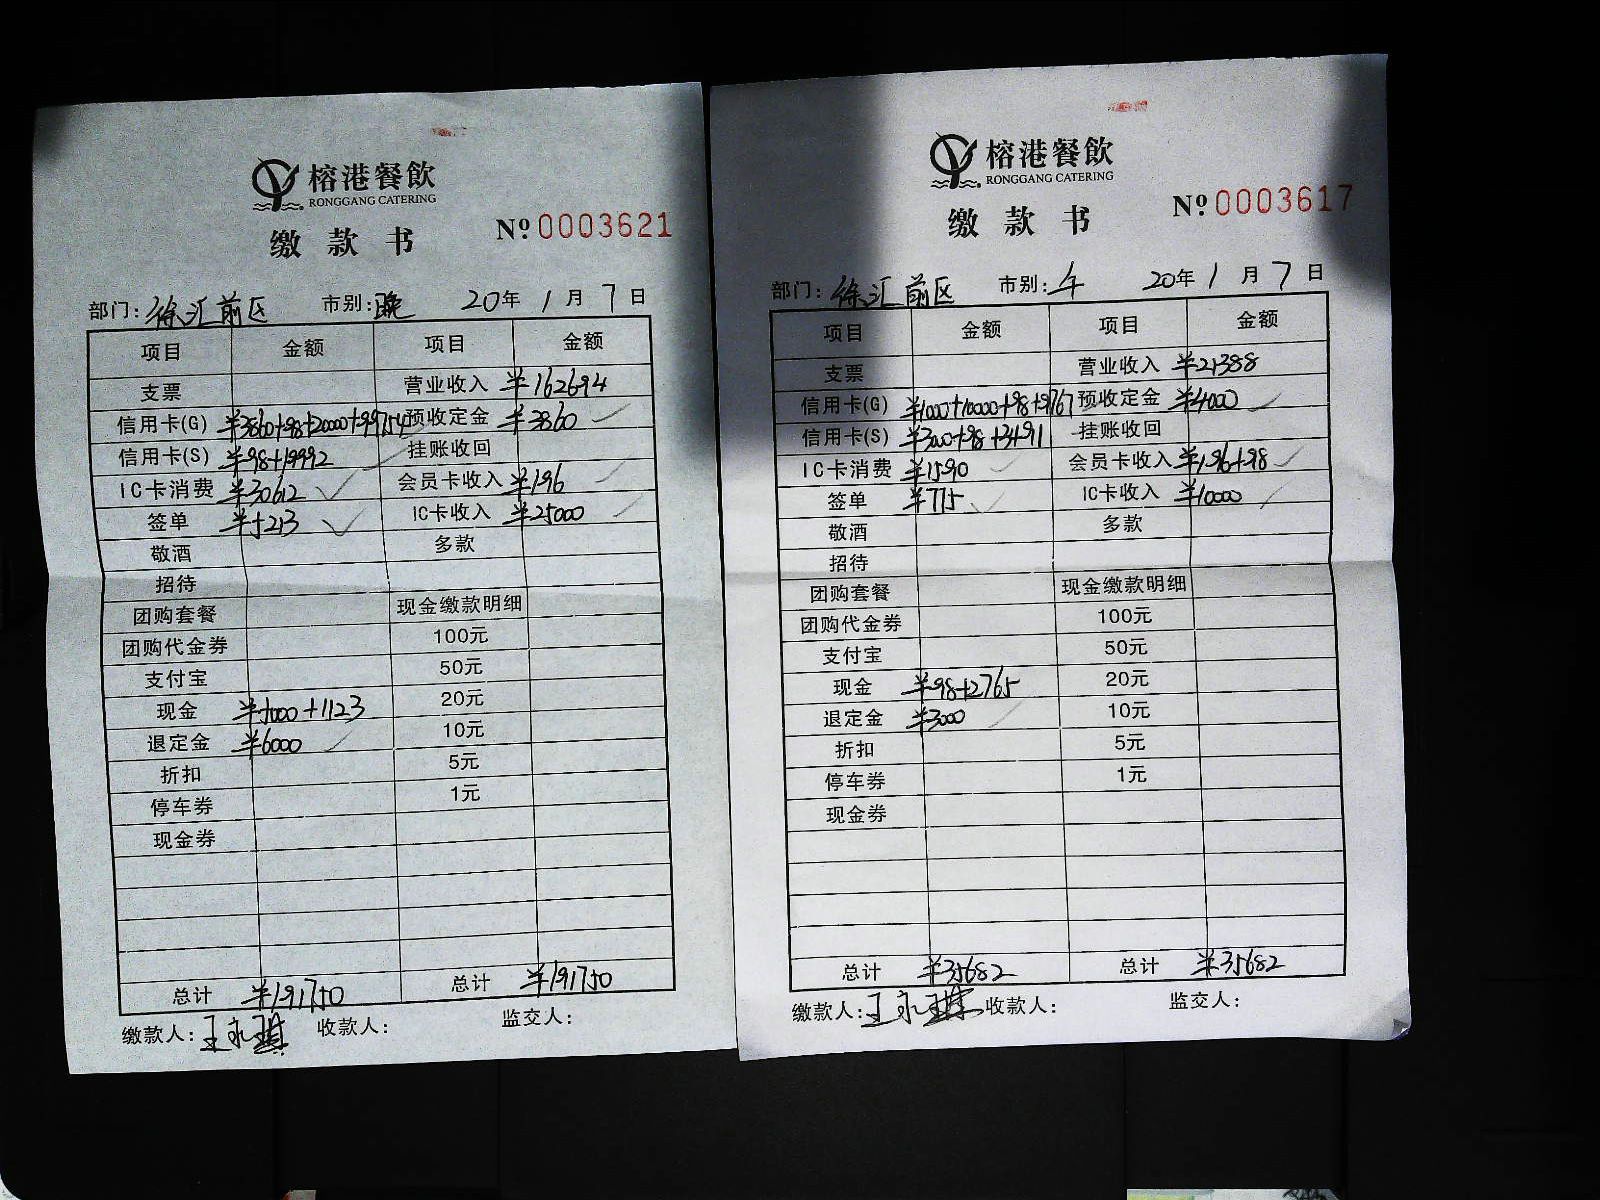 榕港餐飲
RONGGANG CATERING
缴款书
№ 0003621
部门: 徐汇前区 市别: 晚 20年 1月 7日
项目 金额 项目 金额
支票 营业收入 ¥162694
信用卡(G) ¥3860+98+20000+99754 预收定金 ¥3860
信用卡(S) ¥98+19992 挂账收回
IC卡消费 ¥30612 会员卡收入 ¥196
签单 ¥5213 IC卡收入 ¥25000
敬酒 多款
招待
团购套餐 现金缴款明细
团购代金券 100元
支付宝 50元
现金 ¥5000+1123 20元
退定金 ¥6000 10元
折扣 5元
停车券 1元
现金券
总计 ¥191750 总计 ¥191750
缴款人: 王永琪 收款人: 监交人:
榕港餐飲
RONGGANG CATERING
缴款书
№ 0003617
部门: 徐汇前区 市别: 午 20年 1月 7日
项目 金额 项目 金额
支票 营业收入 ¥21388
信用卡(G) ¥1000+10000+98+9767 预收定金 ¥4000
信用卡(S) ¥3000+98+3491 挂账收回
IC卡消费 ¥1590 会员卡收入 ¥196+98
签单 ¥775 IC卡收入 ¥10000
敬酒 多款
招待
团购套餐 现金缴款明细
团购代金券 100元
支付宝 50元
现金 ¥98+2765 20元
退定金 ¥3000 10元
折扣 5元
停车券 1元
现金券
总计 ¥35682 总计 ¥35682
缴款人: 王永琪 收款人: 监交人: